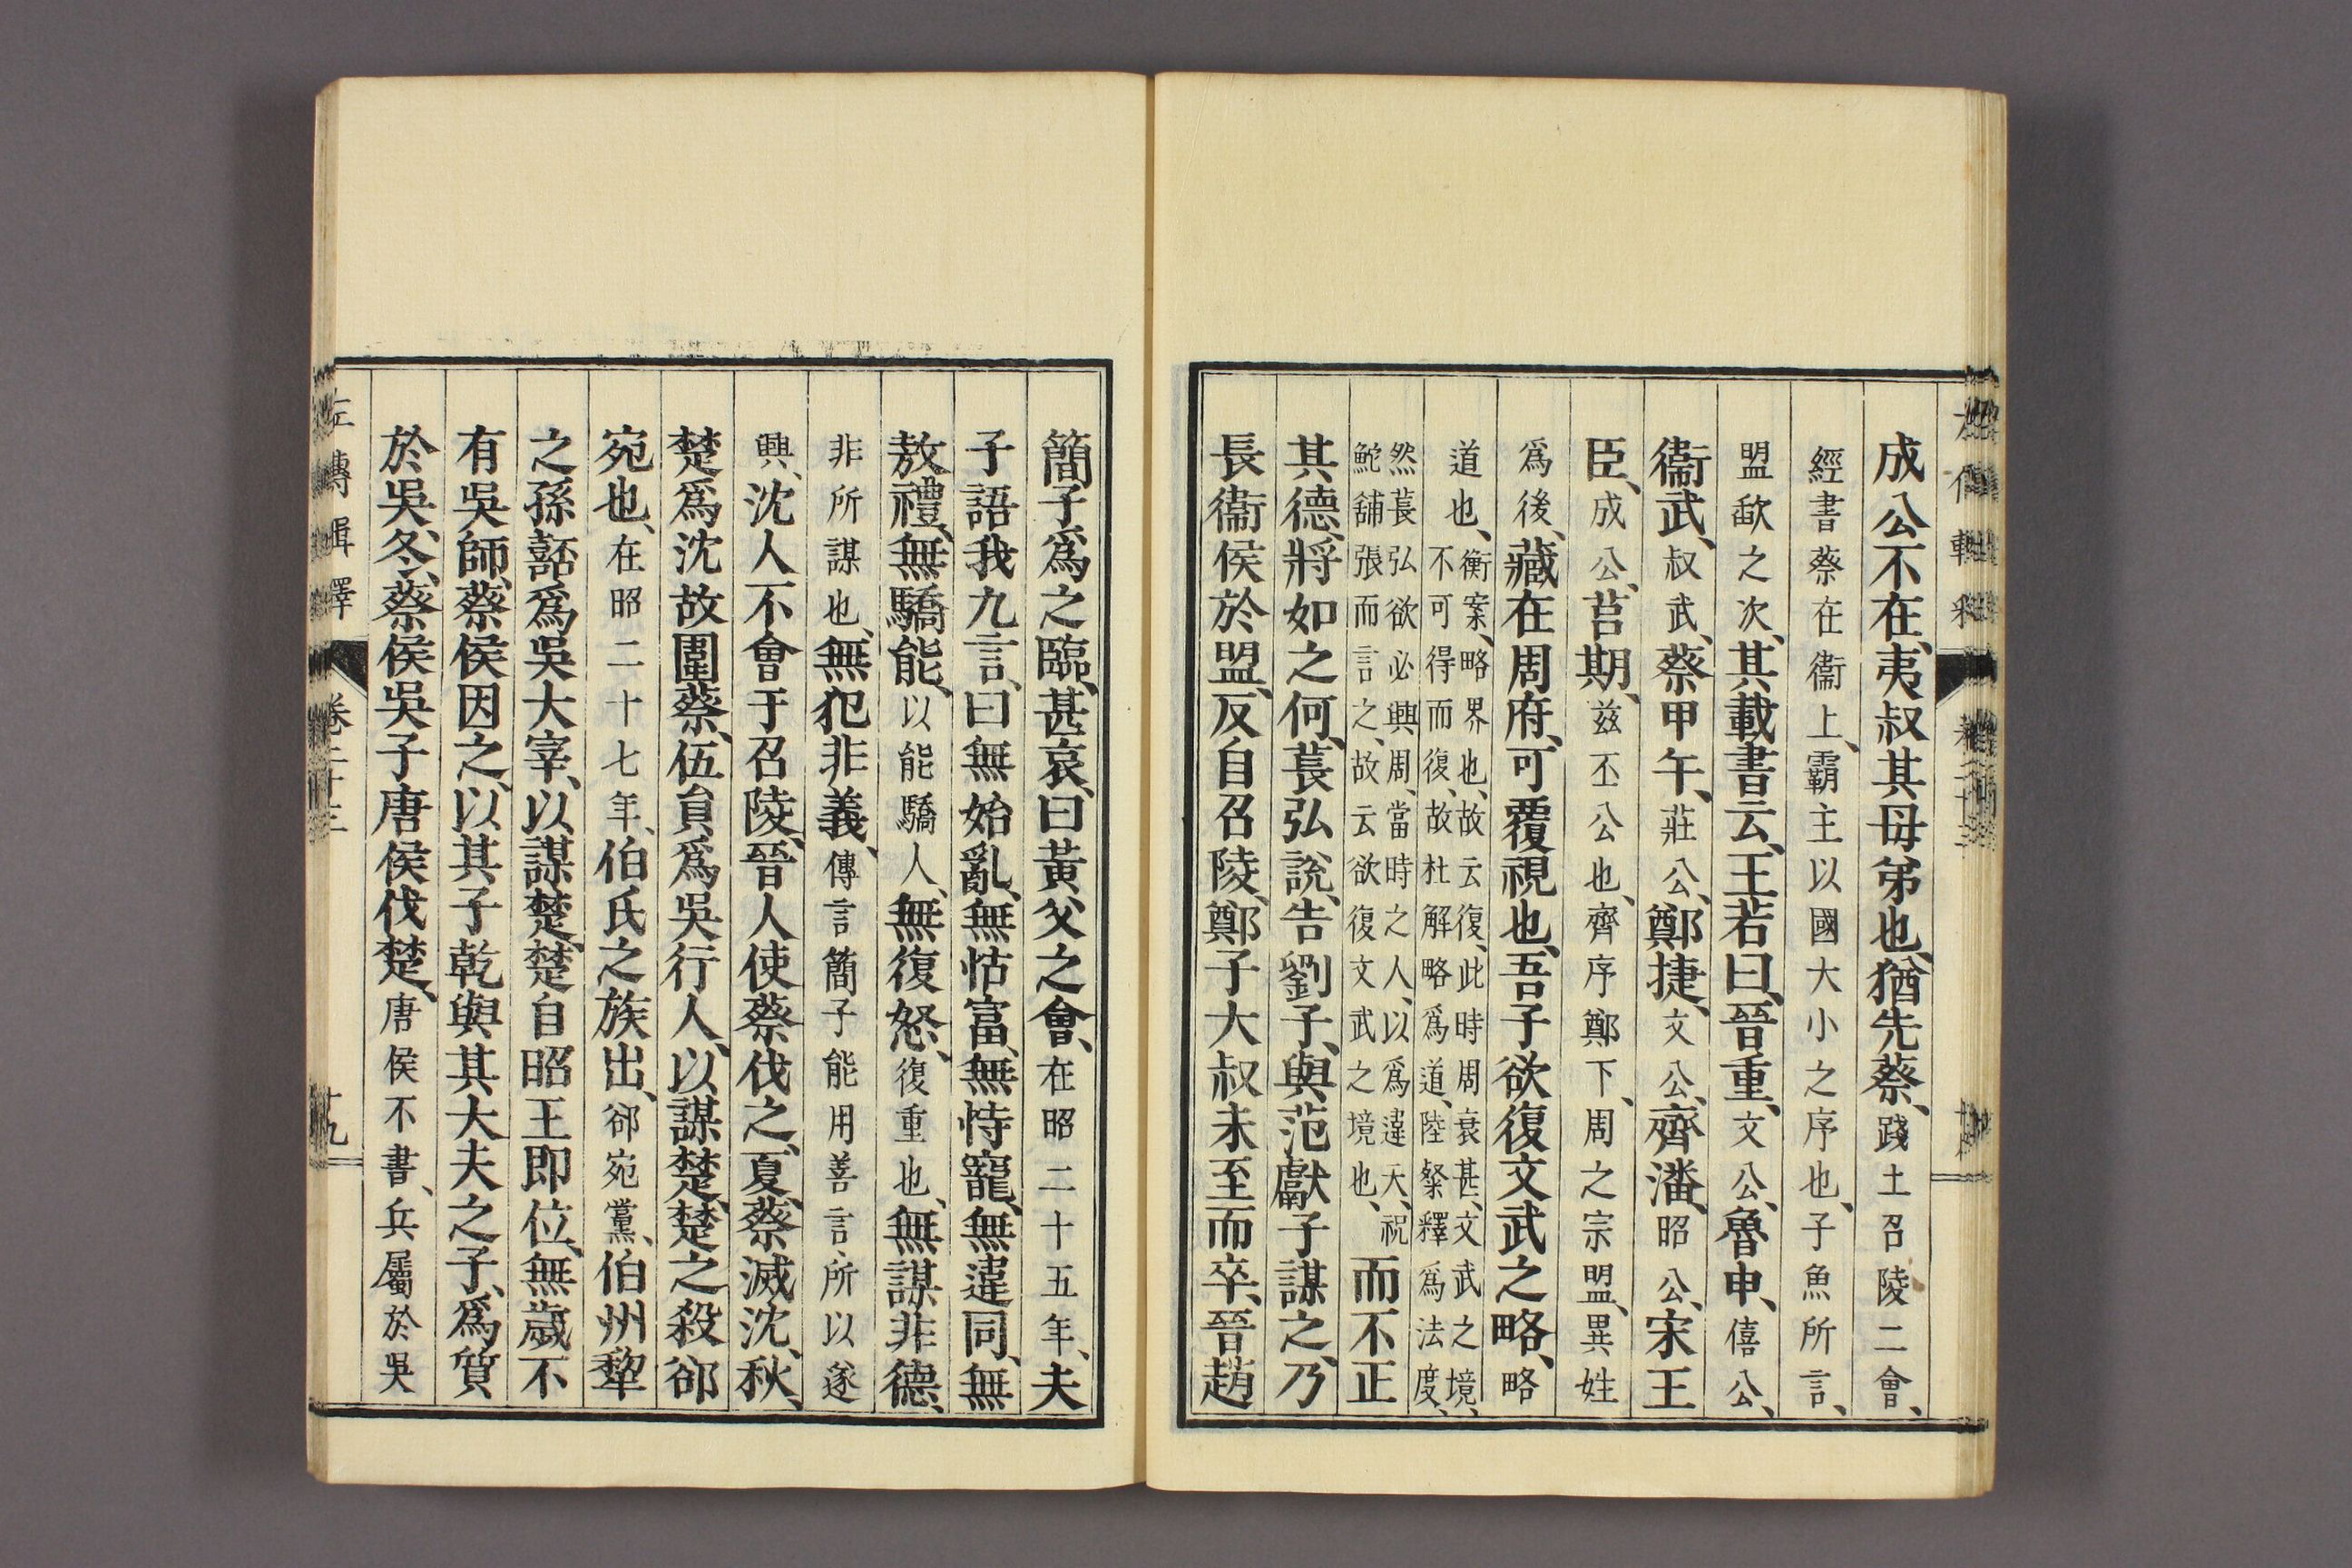 成公不在、夷叔其母弟也、猶先蔡、踐土召陵二會、
經書蔡在衞上、霸主以國大小之序也、子魚所言、
盟歃之次、其載書云、王若曰、晉重、文公、魯申、僖公、
衞武、叔武、蔡甲午、莊公、鄭捷、文公、齊潘、昭公、宋王
臣、成公、莒期、茲丕公也、齊序鄭下、周之宗盟、異姓
爲後、藏在周府、可覆視也、吾子欲復文武之略、略
道也、衡案、略界也、故云復、此時周衰甚、文武之境、
不可得而復、故杜解略爲道、陸粲釋爲法度、
然萇弘欲必興周、當時之人、以爲違天、祝
鮀舖張而言之、故云欲復文武之境也、而不正
其德、將如之何、萇弘說、告劉子、與范獻子謀之、乃
長衞侯於盟、反自召陵、鄭子大叔未至而卒、晉趙
簡子爲之臨、甚哀、曰黃父之會、在昭二十五年、夫
子語我九言、曰無始亂、無怙富、無恃寵、無違同、無
敖禮、無驕能、以能驕人、無復怒、復重也、無謀非德、
非所謀也、無犯非義、傳言簡子能用善言、所以遂
興、沈人不會于召陵、晉人使蔡伐之、夏、蔡滅沈、秋、
楚爲沈故圍蔡、伍員爲吳行人、以謀楚、楚之殺郤
宛也、在昭二十七年、伯氏之族出、郤宛黨、伯州犂
之孫嚭爲吳大宰、以謀楚、楚自昭王即位、無歲不
有吳師、蔡侯因之、以其子乾與其大夫之子、爲質
於吳、冬、蔡侯吳子唐侯伐楚、唐侯不書、兵屬於吳
左傳輯釋
卷二十三
十九